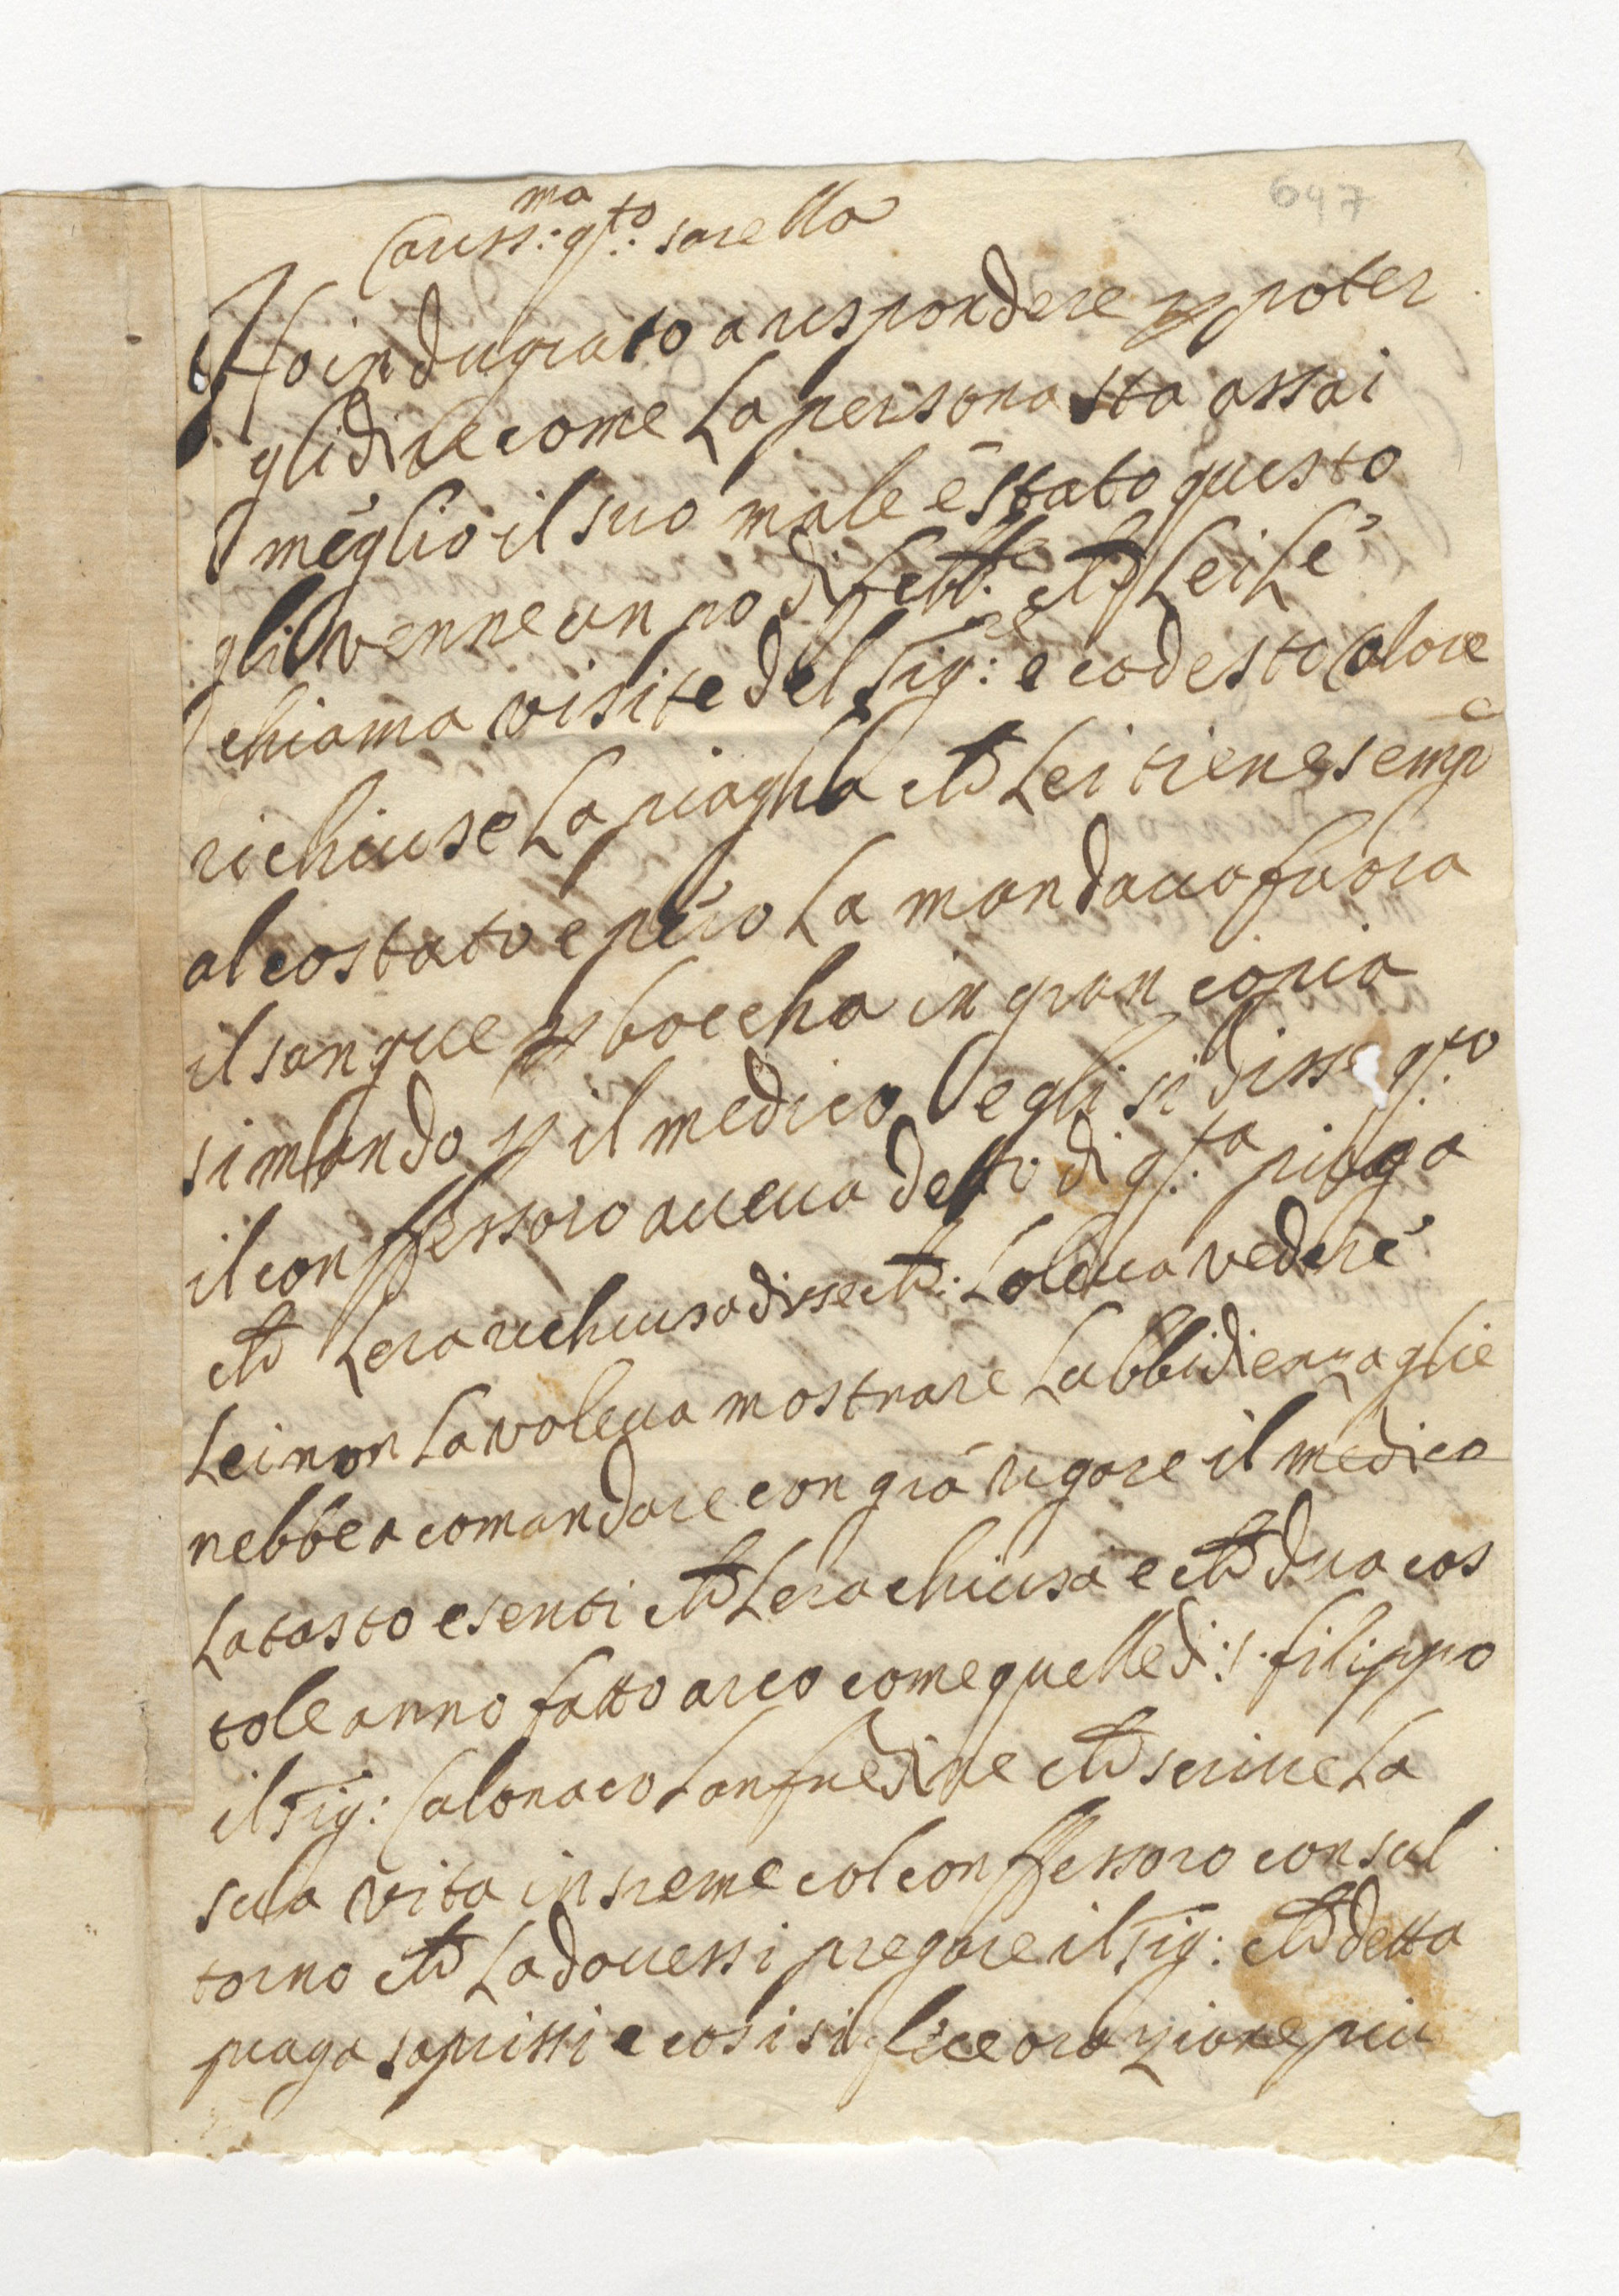 647
Cariss:ma q:to sorella
Ho indugiato a rispondere p poter
gli dire come La persona sta assai
meglio il suo male è stato questo
gli venne un po di febb:re ch Lei Le
chiama visite del Sig:re e codesto Calore
richiuse La piagha ch Lei tiene semp
al costato e però La mandaua fuora
il sangue p boccha in gran copia
si mando p il medico e gli si disse q:to
il conffessoro aueua detto di q:ta piaga
ch Lera richiusa disse ch: Loleua vedere
Lei non La voleua mostrare Lubbidienza glie
nebbe a comandare con grā rigore il medico
La tasto e senti ch Lera chiusa e ch dua cos
tole anno fatto arco come quelle di: S. filippo
il Sig: Calonaco Lanfredine ch scriue La
sua vita insieme col conffessoro consul
torno ch La douessi pregare il Sig: ch detta
piaga saprissi e cosi si fece orazione piu